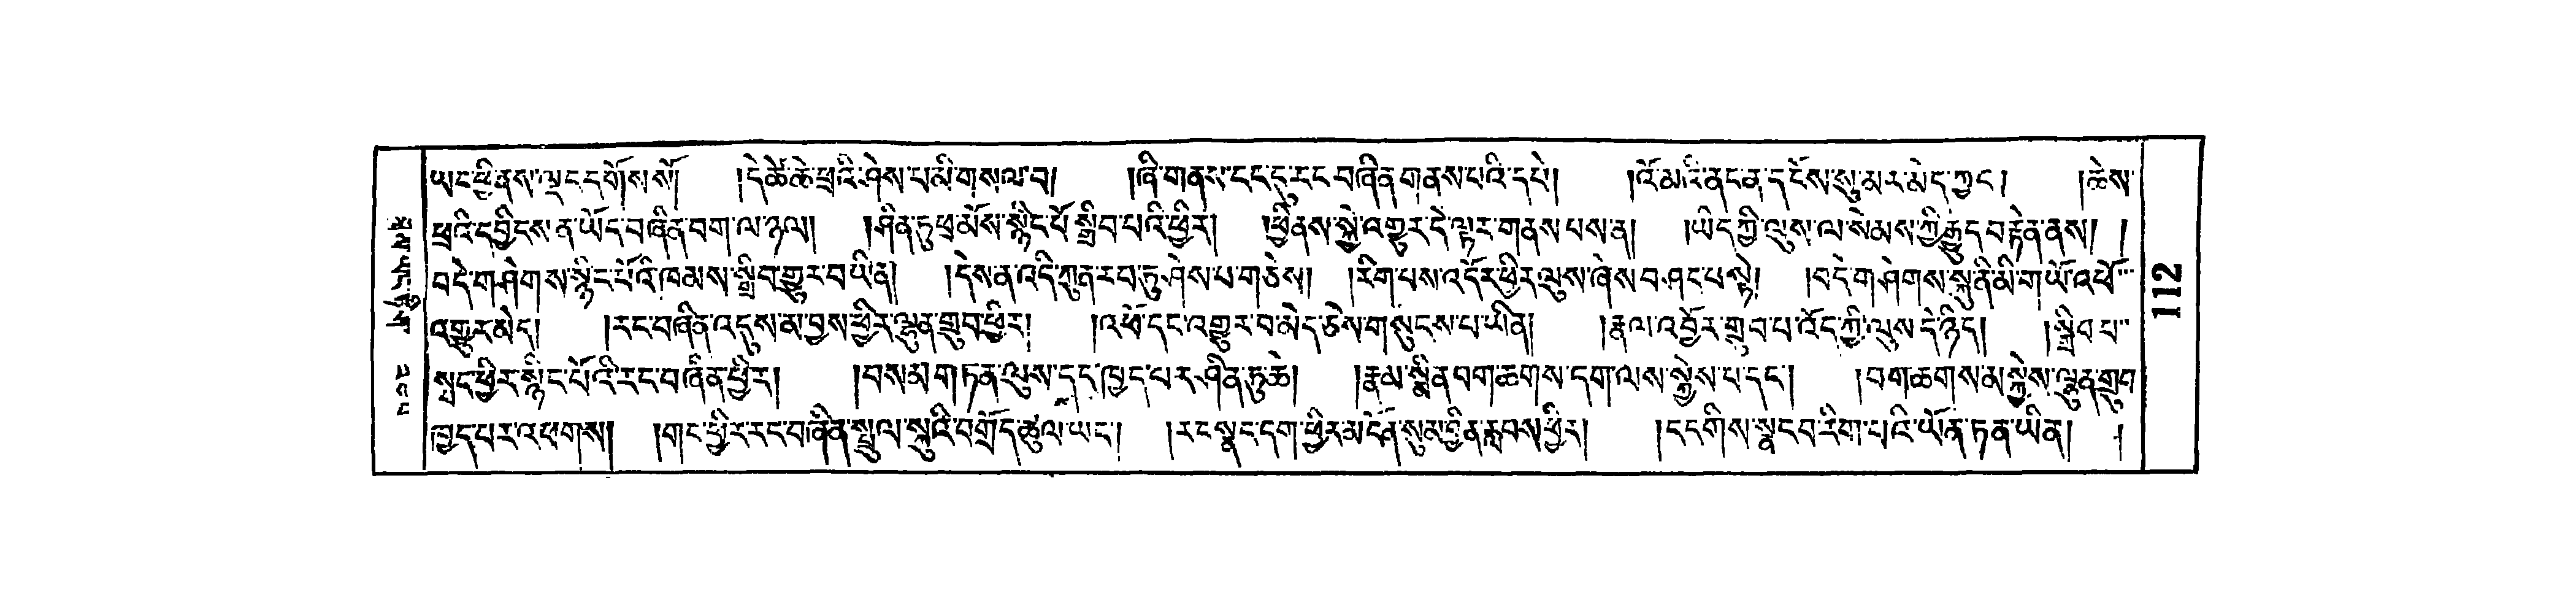 ཡང་ཕྱི་ནས་ལྡང་དགོས་སོ། །དེ་ཚེ་ཆེ་ཕྲའི་ཤེས་པ་མི་གསལ་བ། །ཞི་གནས་དང་དུ་རང་བཞིན་གནས་པའི་དཔེ། །འོ་མའི་ནང་ན་དངོས་སུ་མར་མེད་ཀྱང་། །ཆེས་
ཕྲའི་དབྱིངས་ན་ཡོད་བཞིན་བག་ལ་ཉལ། །ཤིན་ཏུ་ཕྲ་མོས་སྙིང་པོ་སྒྲིབ་པའི་ཕྱིར། །ཕྱི་ནས་སྐྱེ་འགྱུར་དེ་ལྟར་གནས་པས་ན། །ཡིད་ཀྱི་ལུས་ལ་སེམས་ཀྱི་རྒྱུད་བརྟེན་ནས། །
བདེ་གཤེགས་སྙིང་པོའི་ཁམས་སྒྲིབ་གྱུར་བ་ཡིན། །དེས་ན་འདི་ཀུན་རབ་ཏུ་ཤེས་པ་གཅེས། །རིག་པས་འདོར་ཕྱིར་ལུས་ཞེས་བཤང་པ་སྟེ། །བདེ་གཤེགས་སྐུ་ནི་མི་གཡོ་འཕོ་
འགྱུར་མེད། །རང་བཞིན་འདུས་མ་བྱས་ཕྱིར་ལྷུན་གྲུབ་ཕྱིར། །འཕོ་དང་འགྱུར་བ་མེད་ཅེས་གསུངས་པ་ཡིན། །རྣལ་འབྱོར་གྲུབ་པ་འོད་ཀྱི་ལུས་དེ་ཉིད། །སྒྲིབ་པ་
སྤང་ཕྱིར་སྙིང་པོའི་རང་བཞིན་ཕྱིར། །བསམ་གཏན་ལུས་དང་ཁྱད་པར་ཤིན་ཏུ་ཆེ། །རྣམ་སྨིན་བག་ཆགས་དག་ལས་སྐྱེས་པ་དང་། །བག་ཆགས་མ་སྐྱེས་ལྷུན་གྲུབ་
ཁྱད་པར་འཕགས། །གང་ཕྱིར་རང་བཞིན་སྤྲུལ་སྐུའི་བགྲོད་ཚུལ་ཡང་། །རང་སྣང་དག་ཕྱིར་མངོན་སུམ་བྱིན་རླབས་ཕྱིར། །དངགིས་སྣང་བ་རིག་པའི་ཡོན་ཏན་ཡིན། །
112